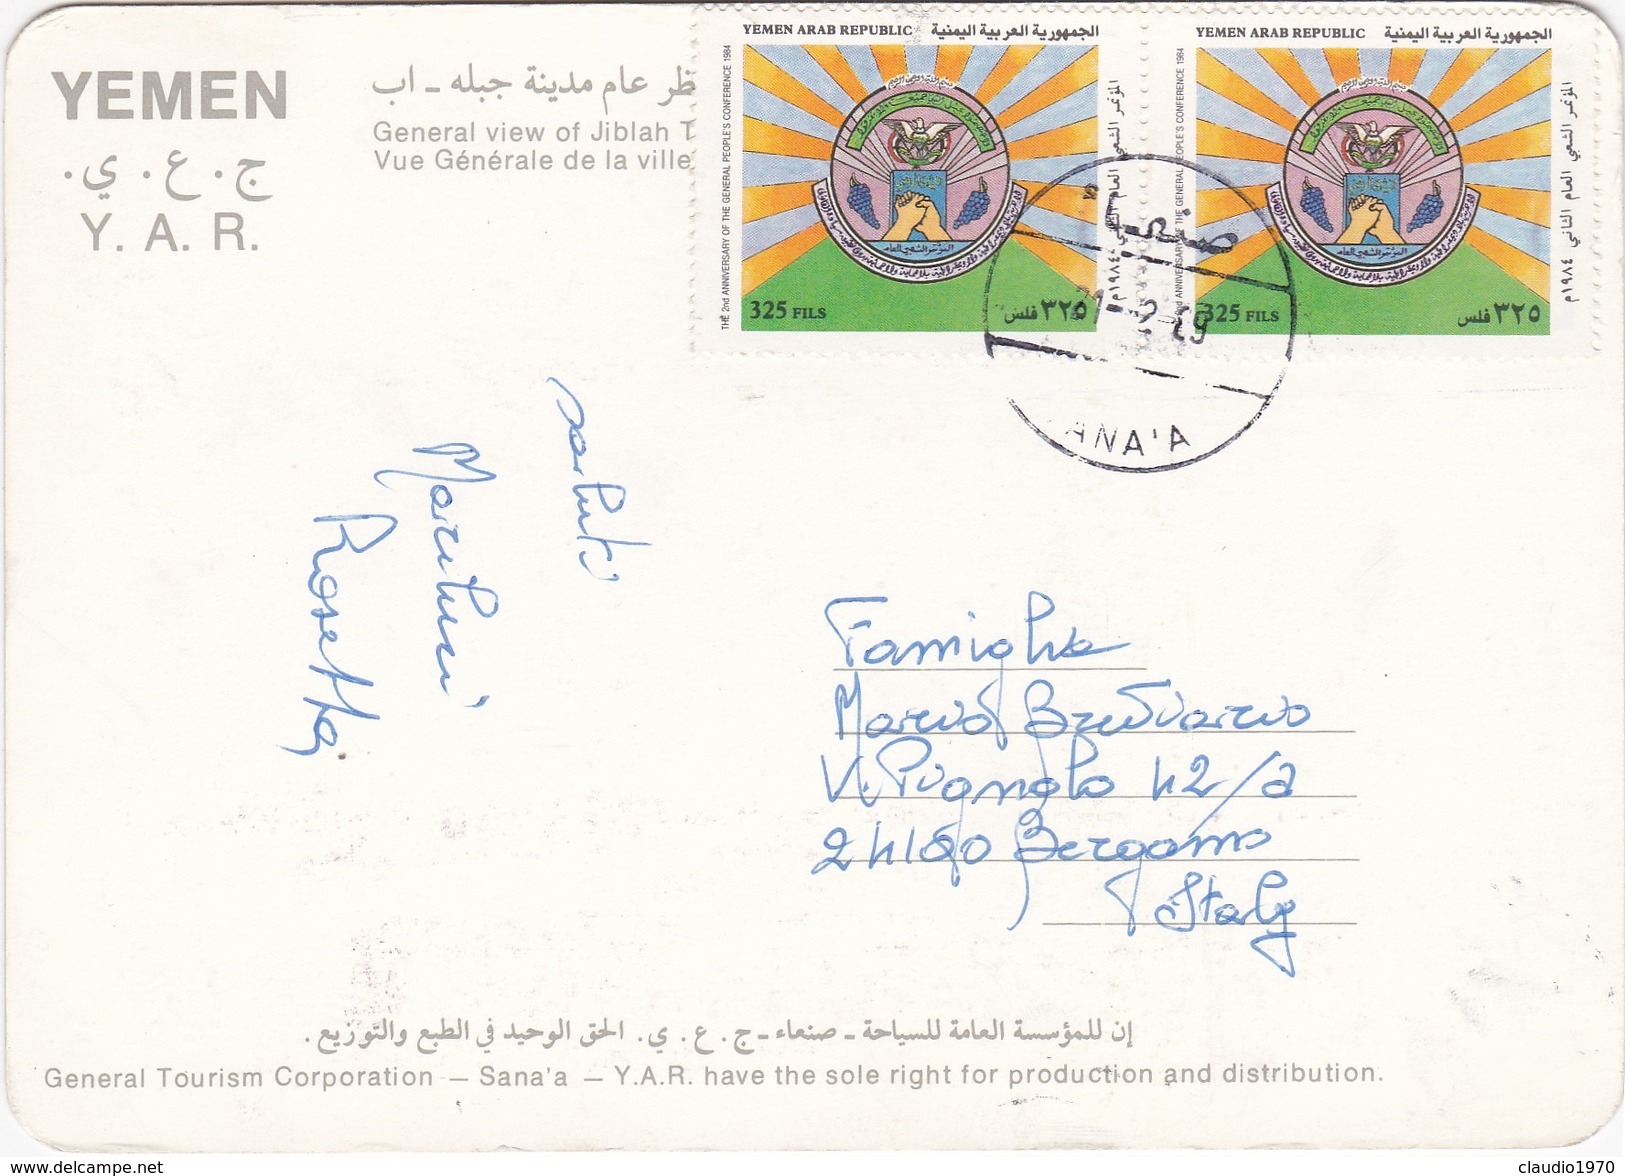 YEMEN
ج . ع . ي .
Y. A. R.
ظر عام مدينة جبله - اب
General view of Jiblah T
Vue Générale de la ville
YEMEN ARAB REPUBLIC الجمهورية العربية اليمنية
THE 2nd ANNIVERSARY OF THE GENERAL PEOPLE'S CONFERENCE 1984
المؤتمر الشعبي العام
325 FILS ٣٢٥ فلس
YEMEN ARAB REPUBLIC الجمهورية العربية اليمنية
GENERAL PEOPLE'S CONFERENCE 1984
المؤتمر الشعبي العام الثاني ١٩٨٤م
المؤتمر الشعبي العام
325 FILS ٣٢٥ فلس
ANA'A
Rosetta
Famiglia
V. Pignolo 42/a
Bergamo
Italy
إن للمؤسسة العامة للسياحة - صنعاء - ج . ع . ي . الحق الوحيد في الطبع والتوزيع .
General Tourism Corporation — Sana'a — Y.A.R. have the sole right for production and distribution.
www.delcampe.net
claudio1970